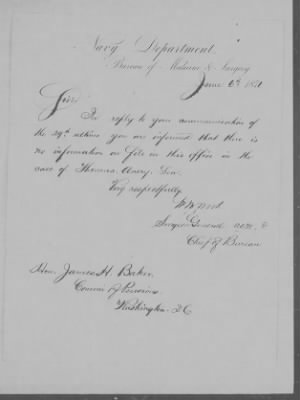 Navy Department
Bureau of Medicine & Surgery
June 6th 1871
Sir:
In reply to your communication of
the 29th ultimo you are informed that there is
no information on file in this office in the
case of Thomas
Very respectfully
W W Wood
Surgeon General &
Chief of Bureau
Hon. James H Baker
Commr of Pensions
Washington D C